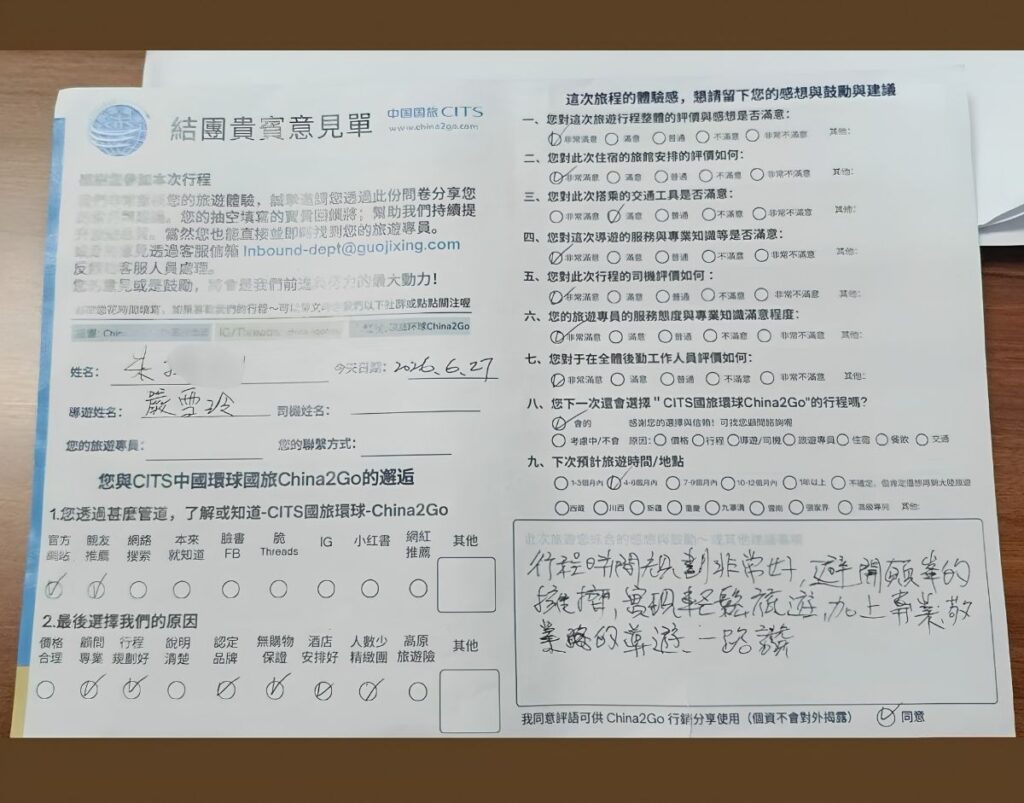 結團貴賓意見單
中国国旅CITS
www.china2go.com
本次行程
您的旅遊體驗，誠摯邀請您透過此份問卷分享您
您的抽空填寫的寶貴回饋將；幫助我們持續提
當然您也能直接並即時找到您的旅遊專員。
透過客服信箱 Inbound-dept@guojixing.com
客服人員處理。
您的意見或是鼓勵，將會是我們前進與努力的最大動力！
姓名：朱 今天日期：2026.6.27
導遊姓名：嚴雪玲 司機姓名：
您的旅遊專員： 您的聯繫方式：
您與CITS中國環球國旅China2Go的邂逅
1.您透過甚麼管道，了解或知道-CITS國旅環球-China2Go
官方網站 親友推薦 網絡搜索 本來就知道 臉書FB 脆Threads IG 小红書 網紅推薦 其他
2.最後選擇我們的原因
價格合理 顧問專業 行程規劃好 說明清楚 認定品牌 無購物保證 酒店安排好 人數少精緻團 高原旅遊險 其他
這次旅程的體驗感，懇請留下您的感想與鼓勵與建議
一、您對這次旅遊行程整體的評價與感想是否滿意：
非常滿意 滿意 普通 不滿意 非常不滿意 其他：
二、您對此次住宿的旅館安排的評價如何：
非常滿意 滿意 普通 不滿意 非常不滿意 其他：
三、您對此次搭乘的交通工具是否滿意：
非常滿意 滿意 普通 不滿意 非常不滿意 其他：
四、您對這次導遊的服務與專業知識等是否滿意：
非常滿意 滿意 普通 不滿意 非常不滿意 其他：
五、您對此次行程的司機評價如何：
非常滿意 滿意 普通 不滿意 非常不滿意 其他：
六、您的旅遊專員的服務態度與專業知識滿意程度：
非常滿意 滿意 普通 不滿意 非常不滿意 其他：
七、您對于在全體後勤工作人員評價如何：
非常滿意 滿意 普通 不滿意 非常不滿意 其他：
八、您下一次還會選擇"CITS國旅環球China2Go"的行程嗎?
會的 感謝您的選擇與信賴! 可找您顧問諮詢喔
考慮中/不會 原因：價格 行程 導遊/司機 旅遊專員 住宿 餐飲 交通
九、下次預計旅遊時間/地點
1-3個月內 4-6個月內 7-9個月內 10-12個月內 1年以上 不確定，但肯定還想再騎大陸旅遊
西藏 川西 新疆 重慶 九寨溝 雲南 張家界 高級專列 其他:
此次旅遊您綜合的感想與鼓勵～或其他建議事項
行程時間規劃非常好，避開顛峯的
擁擠，實現輕鬆旅遊，加上專業敬
業的導遊一路讚
我同意評語可供 China2Go 行銷分享使用（個資不會對外揭露） 同意